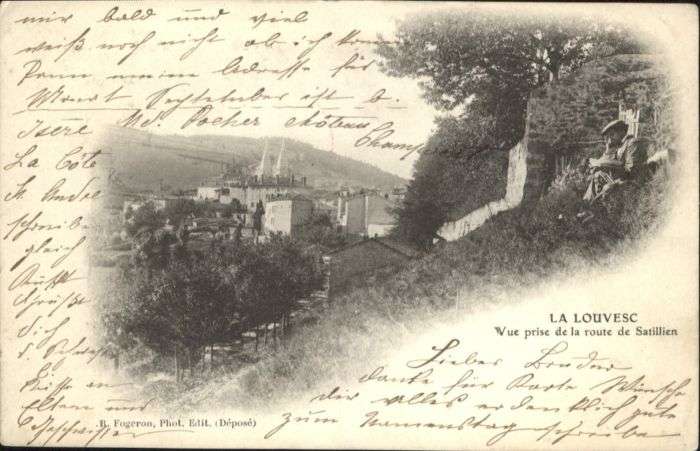 LA LOUVESC
Vue prise de la route de Satillien
Lieber Bruder
danke für Karte Wünsche
dir alles erdenklich gute
zum Namenstag schreibe
mir bald und viel
weiß noch nicht ob ich
kann meine Adresse für
Monat September ist b.
Isère Md. Pocher château
La Côte
St. André
schreibe
gleich
Grüße
dich
Küsse an
Eltern und
Geschwister
B. Fogeron, Phot. Edit. (Déposé)